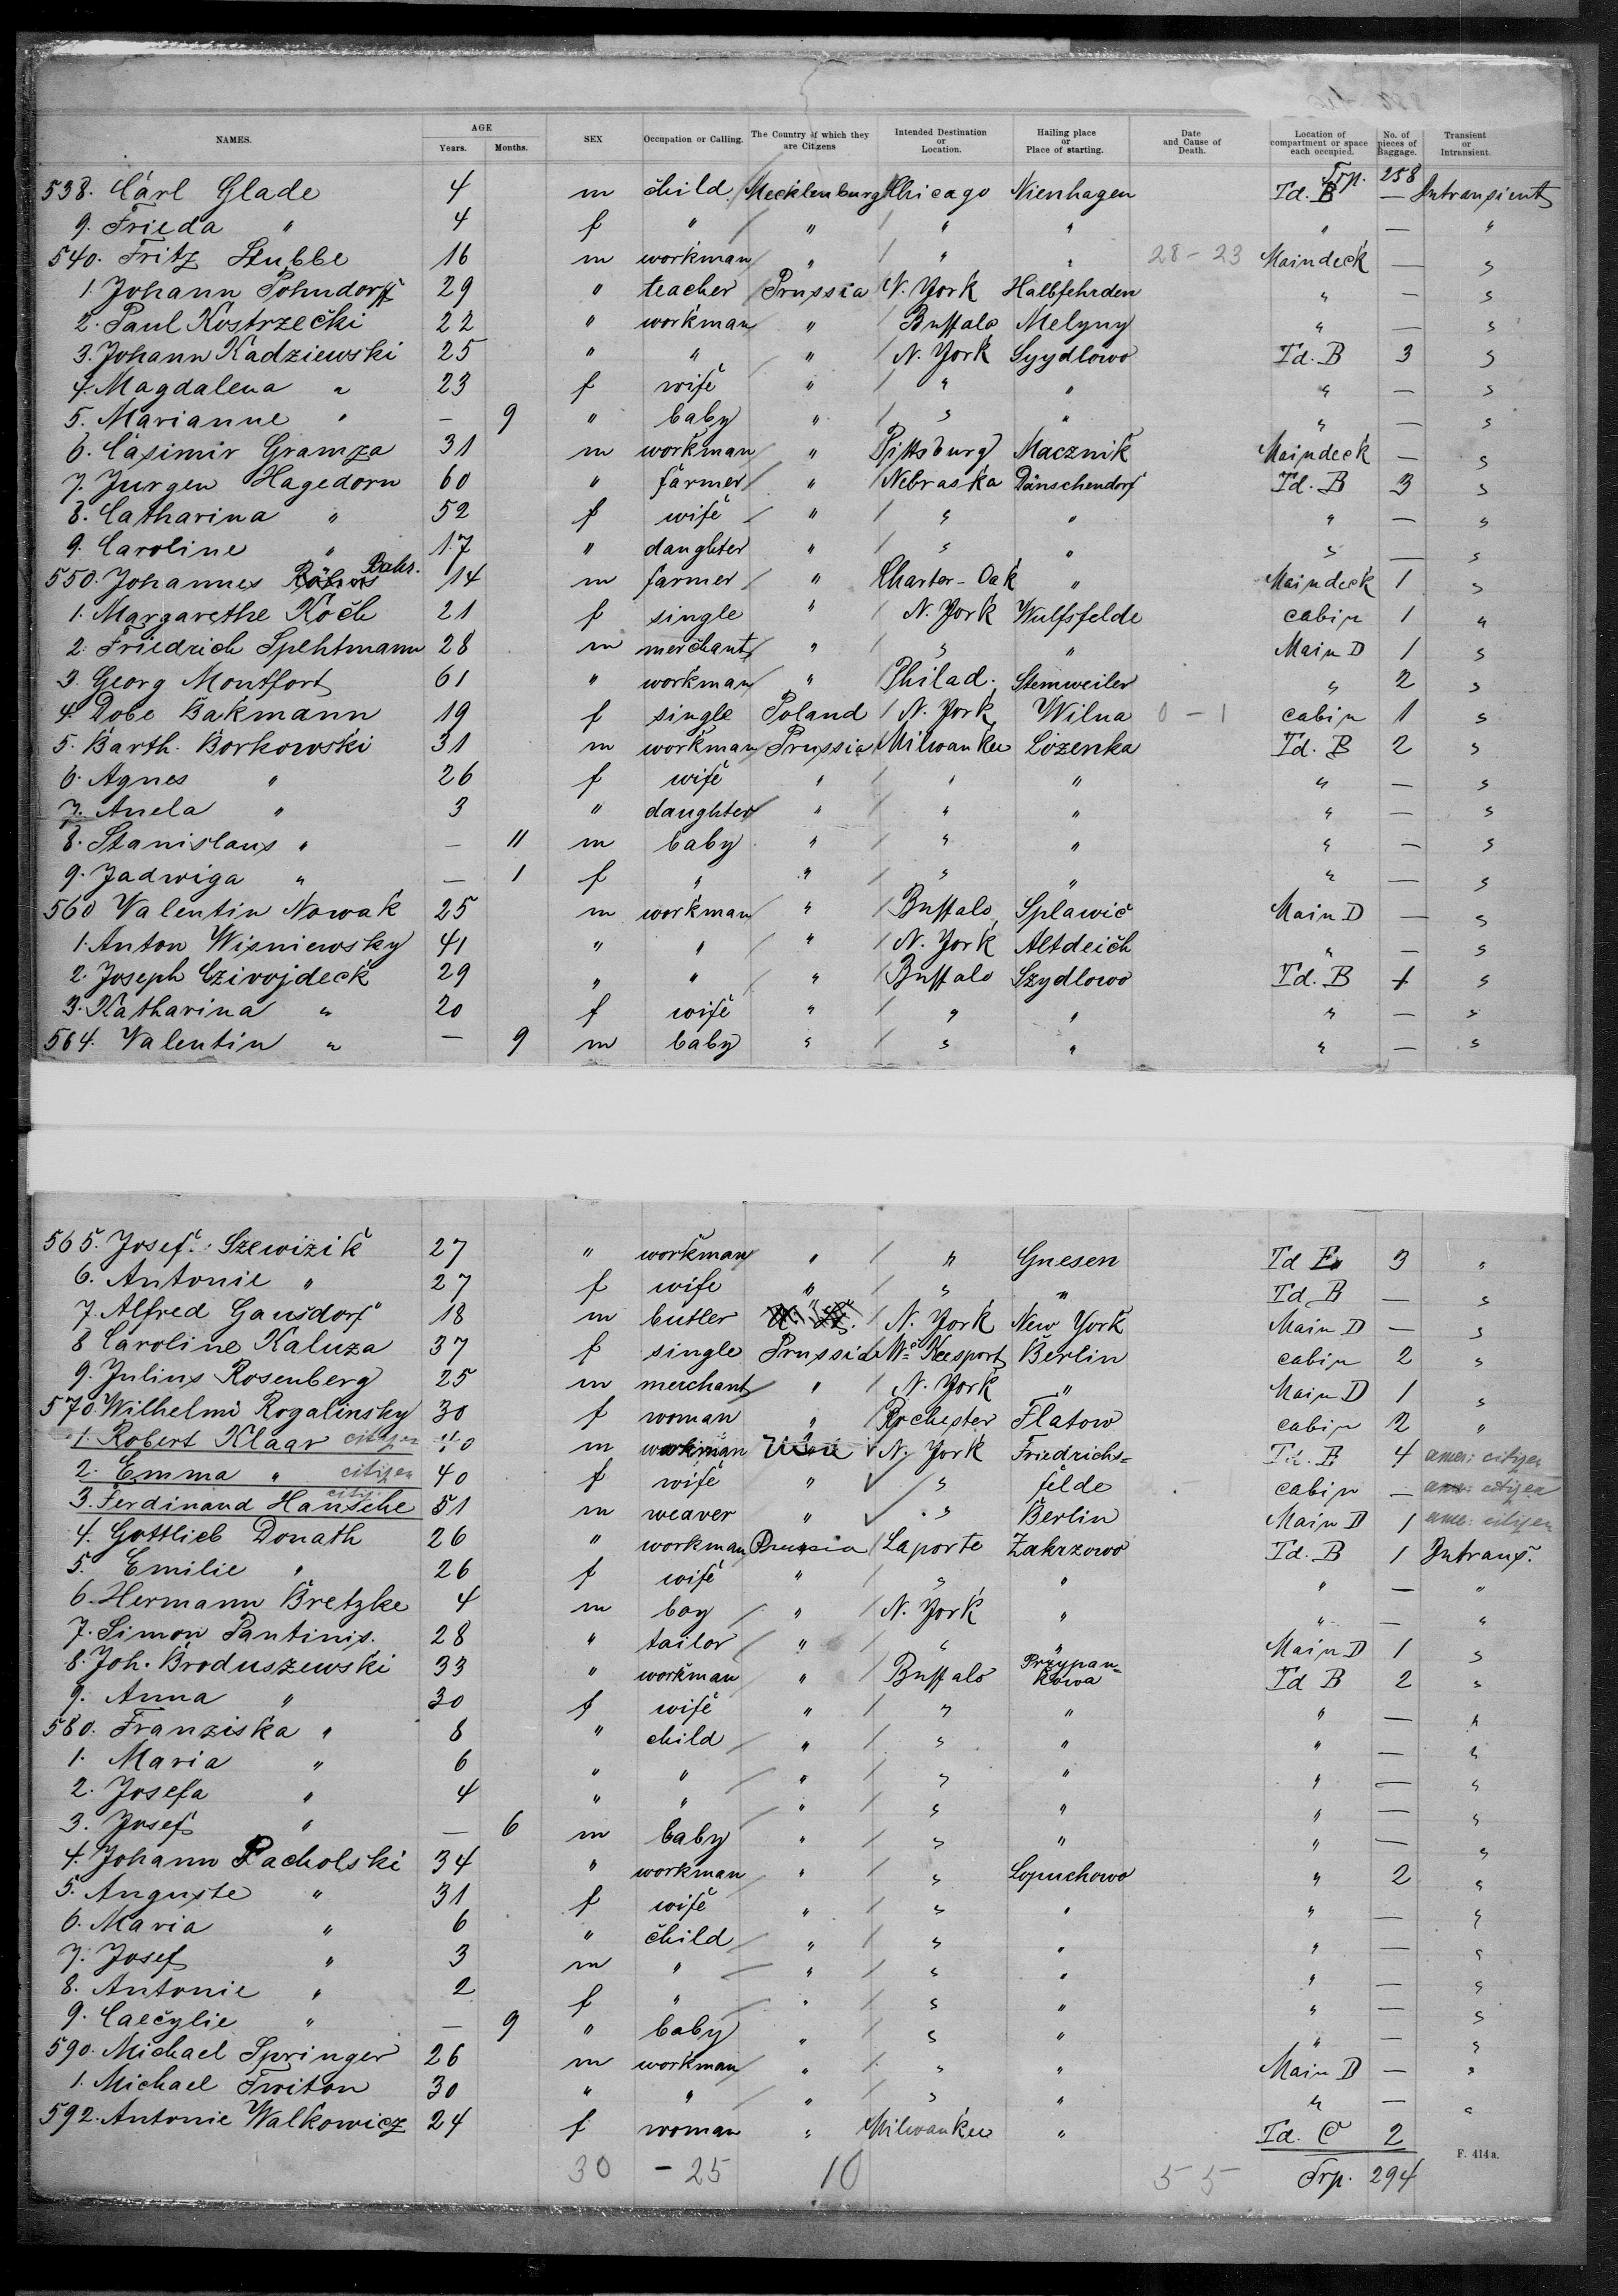 NAMES. AGE Years. Months. SEX Occupation or Calling. The Country of which they are Citizens Intended Destination or Location. Hailing place or Place of starting. Date and Cause of Death. Location of compartment or space each occupied. No. of pieces of Baggage. Transient or Intransient.
Trp. 258
538. Carl Glade 4 m child Mecklenburg Chicago Nienhagen Td. B — Intransient
9. Frieda " 4 f " " " " " — "
540. Fritz Stubbe 16 m workman " " " 28-23 Maindeck — "
1. Johann Pohndorff 29 " teacher Prussia N. York Halbfehrden " — "
2. Paul Kostrzecki 22 " workman " Buffalo Melyny " — "
3. Johann Kadziewski 25 " " " N. York Syydlowo Td. B 3 "
4. Magdalena " 23 f wife " " " " — "
5. Marianne " — 9 " baby " " " " — "
6. Casimir Gramza 31 m workman " Pittsburg Macznik Maindeck — "
7. Jurgen Hagedorn 60 " farmer " Nebraska Dänschendorf Td. B 3 "
8. Catharina " 52 f wife " " " " — "
9. Caroline " 17 " daughter " " " " — "
550. Johannes Bahr. 14 m farmer " Charter-Oak " Maindeck 1 "
1. Margarethe Koch 21 f single " N. York Wulfsfelde cabin 1 "
2. Friedrich Spehtmann 28 m merchant " " " Main D 1 "
3. Georg Montfort 61 " workman " Philad. Stemweiler " 2 "
4. Dobe Bakmann 19 f single Poland N. York Wilna 0-1 cabin 1 "
5. Barth. Borkowski 31 m workman Prussia Milwaukee Lozenka Td. B 2 "
6. Agnes " 26 f wife " " " " — "
7. Anela " 3 " daughter " " " " — "
8. Stanislaus " — 11 m baby " " " " — "
9. Jadwiga " — 1 f " " " " " — "
560 Valentin Nowak 25 m workman " Buffalo Splawic Main D — "
1. Anton Wisniewsky 41 " " " N. York Altdeich " — "
2. Joseph Czivojdeck 29 " " " Buffalo Szydlowo Td. B 1 "
3. Katharina " 20 f wife " " " " — "
564. Valentin " — 9 m baby " " " " — "
565. Josef. Szewizik 27 " workman " " Gnesen Td 3 "
6. Antonie " 27 f wife " " " Td B — "
7. Alfred Gansdorf 18 m butler N. York New York Main D — "
8 Caroline Kaluza 37 f single Prussia Mc Keesport Berlin cabin 2 "
9. Julius Rosenberg 25 m merchant " N. York " Main D 1 "
570. Wilhelmi Rogalinsky 30 f woman " Rochester Flatow cabin 2 "
1. Robert Klaar citizen 40 m workman N. York Friedrichs= Td. B 4 amer: citizen
2. Emma " citizen 40 f wife " " felde cabin — amer: citizen
3. Ferdinand Hansche citiz 51 m weaver " " Berlin Main D 1 amer: citizen
4. Gottlieb Donath 26 " workman Prussia Laporte Zakrzowo Td. B 1 Intrans.
5. Emilie " 26 f wife " " " " — "
6. Hermann Bretzke 4 m boy " N. York " " — "
7. Simon Pantinis. 28 " tailor " " " Main D 1 "
8. Joh. Broduszewski 33 " workman " Buffalo Przypan= kowa Td B 2 "
9. Anna " 30 f wife " " " " — "
580. Franziska " 8 " child " " " " — "
1. Maria " 6 " " " " " " — "
2. Josefa " 4 " " " " " " — "
3. Josef " — 6 m baby " " " " — "
4. Johann Pacholski 34 " workman " " Lopuchowo " 2 "
5. Auguste " 31 f wife " " " " — "
6. Maria " 6 " child " " " " — "
7. Josef " 3 m " " " " " — "
8. Antonie " 2 f " " " " " — "
9. Caecylie " — 9 " baby " " " " — "
590. Michael Springer 26 m workman " " " Main D — "
1. Michael Twiton 30 " " " " " " — "
592. Antonie Walkowicz 24 f woman " Milwaukee " Td. C 2
F. 414 a.
30 - 25 10 55 Trp. 294